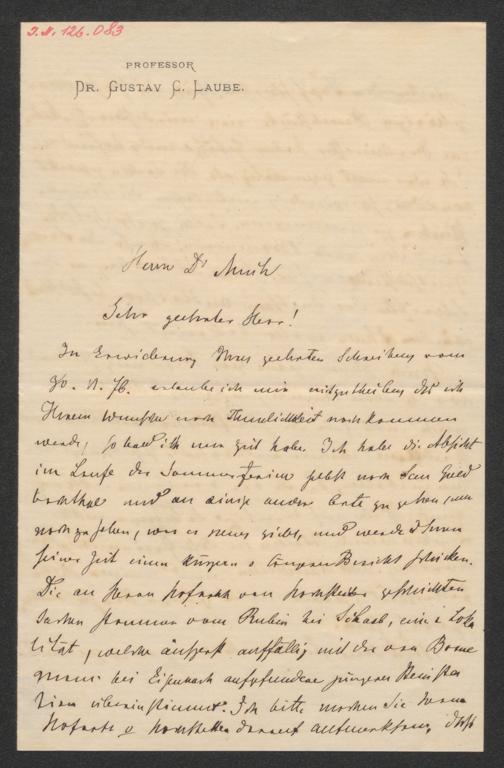 J.N. 126.083
PROFESSOR
DR. GUSTAV C. LAUBE.
Herrn Dr Much
Sehr geehrter Herr!
In Erwiderung Ihres geehrten Schreibens vom
erlaube ich mir mitzutheilen dß ich
Ihrem Wunsche nach Thunlichkeit nachkommen
werde, sobald ich nur Zeit habe. Ich habe die Absicht
im Laufe der Sommerferien selbst nach
und an einige andere Orte zu gehen, um
nachzusehen, was es neues giebt, und werde Ihnen
seiner Zeit einen kürzern o längern Bericht schicken.
Die an Herrn Hofrath von Hochstetter geschickten
Sachen stammen vom Rubin bei Schaab, einer Loka
lität, welche äußerst auffällig mit der von
bei Eisenach aufgefundene jüngeren Steinstation
übereinstimmt. Ich bitte machen Sie Herrn
Hofrath v Hochstetter darauf aufmerksam, daß